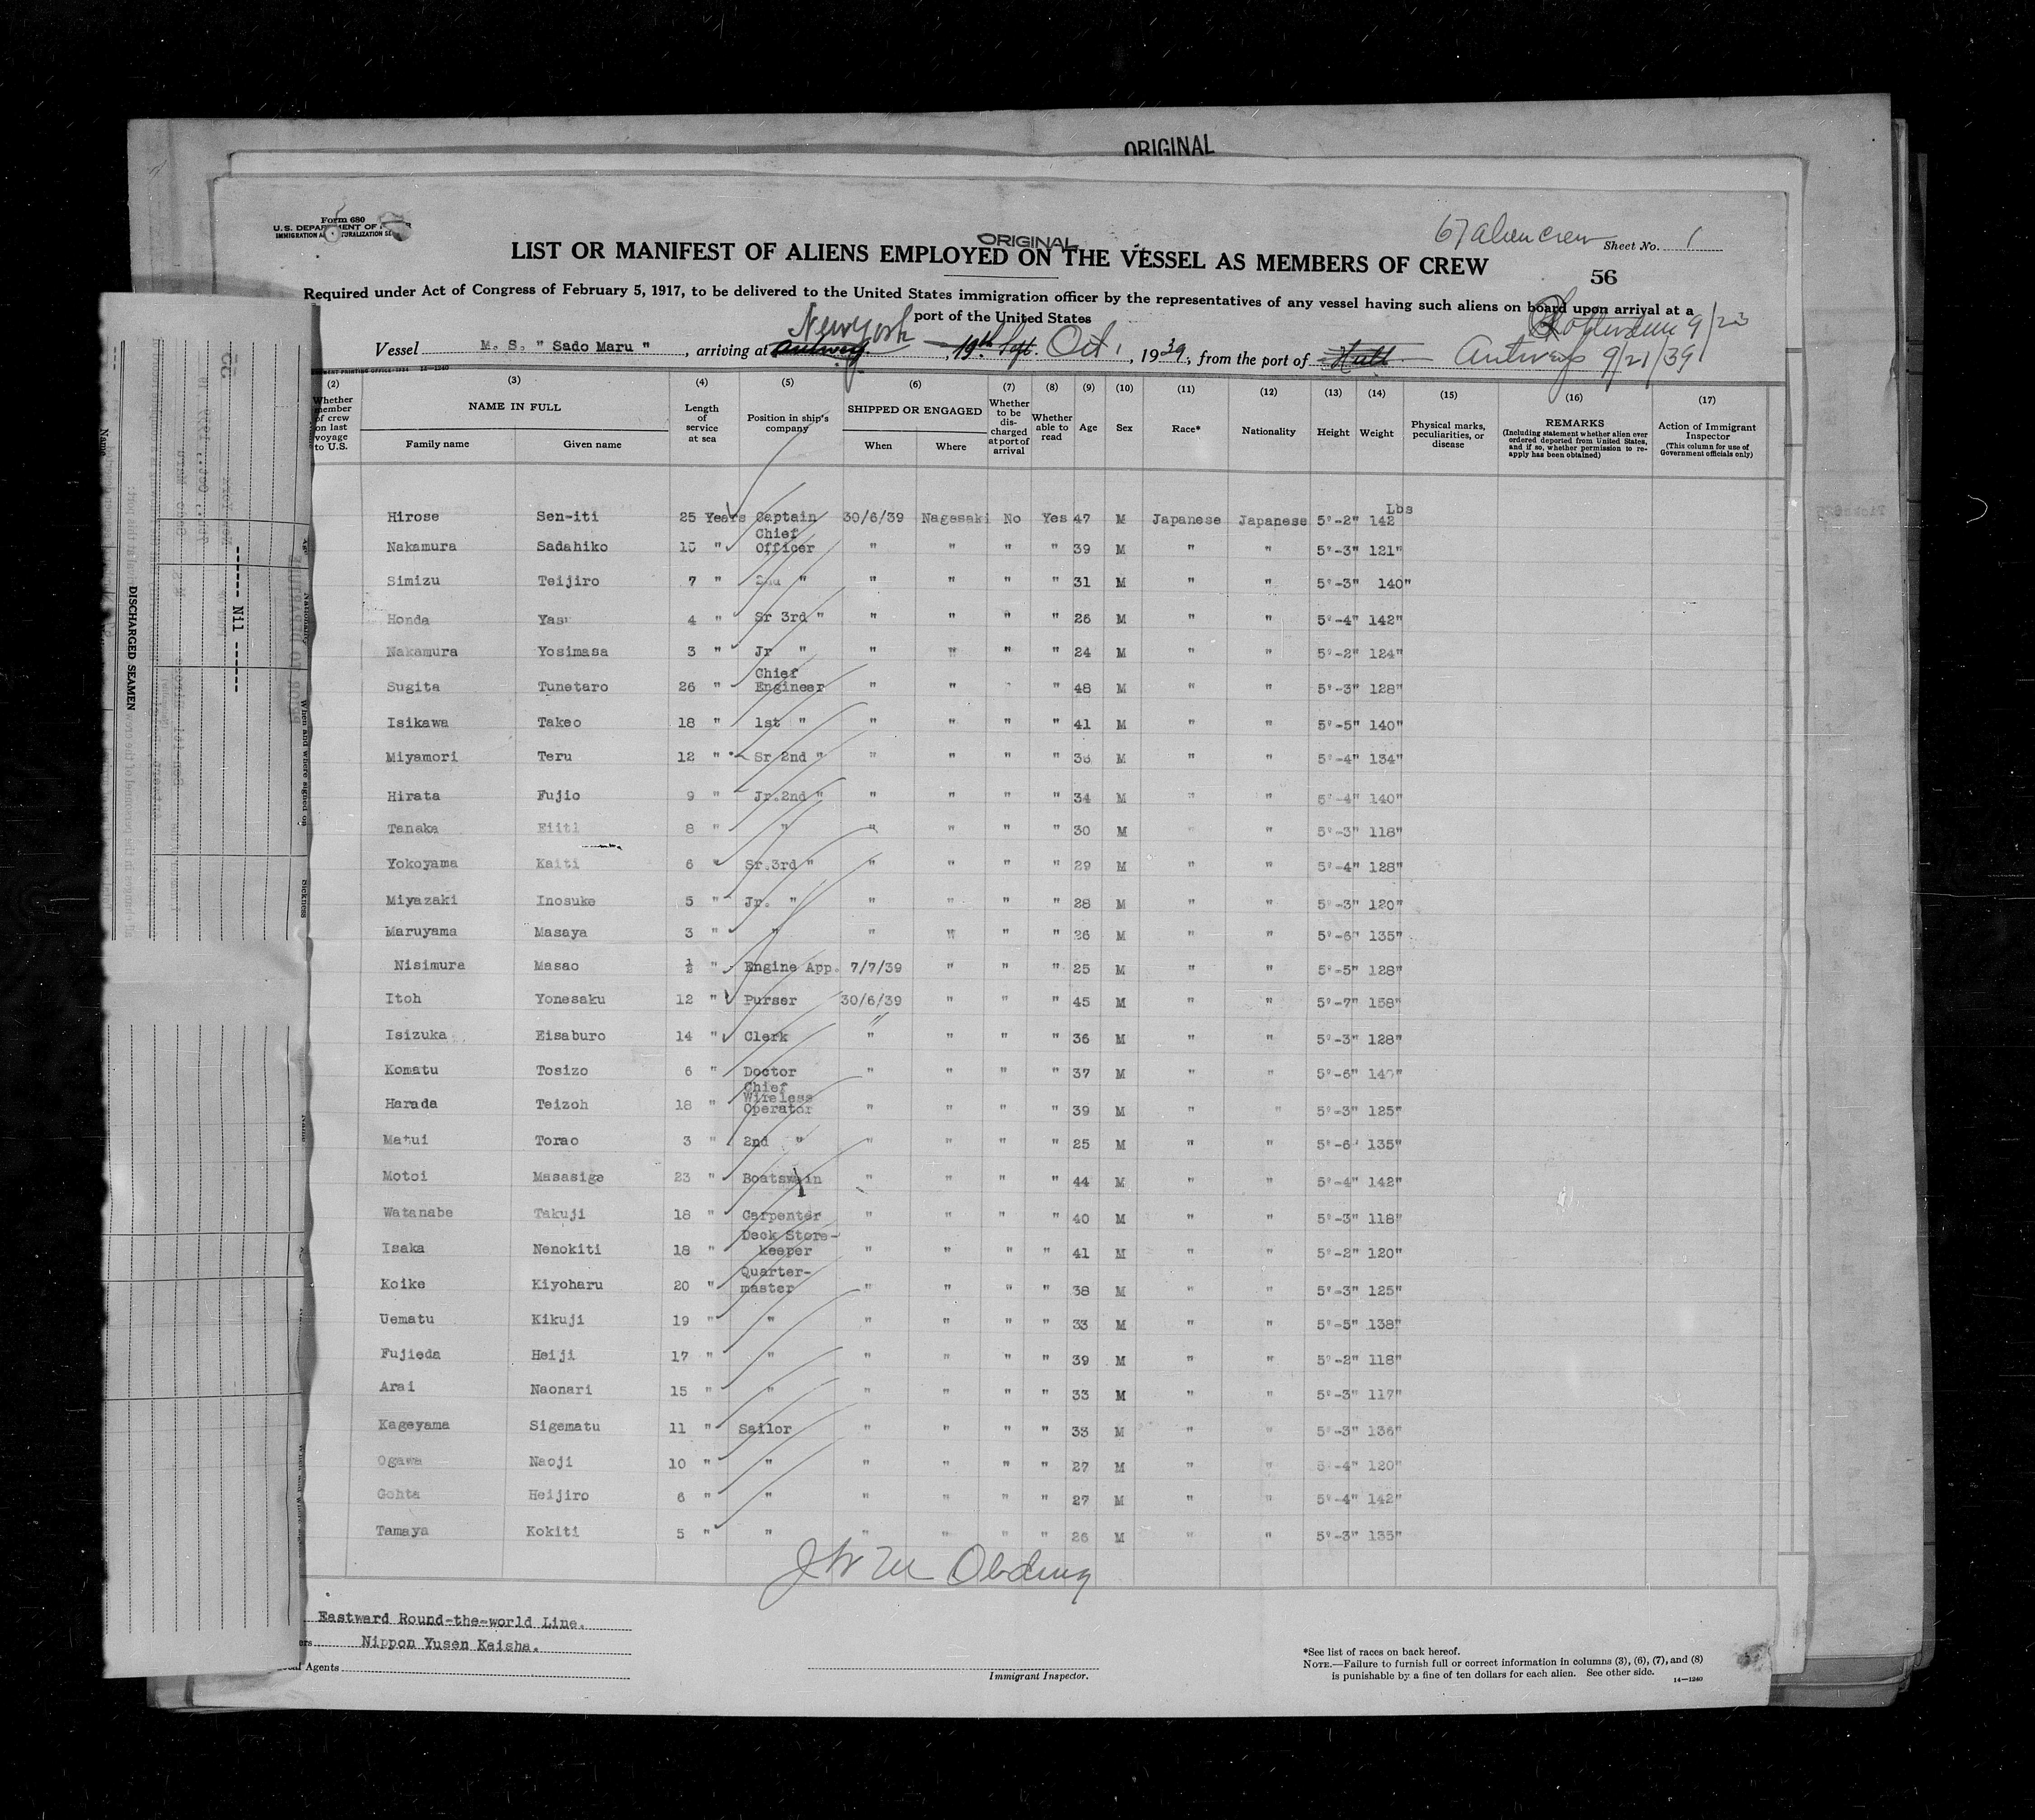 ORIGINAL
Form 680
U.S. DEPARTMENT OF
IMMIGRATION
67 alien crew Sheet No. 1
ORIGINAL
LIST OR MANIFEST OF ALIENS EMPLOYED ON THE VESSEL AS MEMBERS OF CREW
56
Required under Act of Congress of February 5, 1917, to be delivered to the United States immigration officer by the representatives of any vessel having such aliens on board upon arrival at a
port of the United States
Rotterdam 9/23
New York
Vessel M. S. " Sado Maru ", arriving at Antwerp, 19th Sept. Oct 1, 1939, from the port of Hull Antwerp 9/21/39
(2) (3) (4) (5) (6) (7) (8) (9) (10) (11) (12) (13) (14) (15) (16) (17)
Whether member of crew on last voyage to U.S.
NAME IN FULL
Family name Given name
Length of service at sea
Position in ship's company
SHIPPED OR ENGAGED
When Where
Whether to be discharged at port of arrival
Whether able to read
Age
Sex
Race*
Nationality
Height
Weight
Physical marks, peculiarities, or disease
REMARKS
(Including statement whether alien ever ordered deported from United States, and if so, whether permission to reapply has been obtained)
Action of Immigrant Inspector
(This column for use of Government officials only)
Hirose Sen-iti 25 Years Captain 30/6/39 Nagasaki No Yes 47 M Japanese Japanese 5'-2" 142 Lbs
Nakamura Sadahiko 15 " Chief Officer " " " " 39 M " " 5'-3" 121"
Simizu Teijiro 7 " 2nd " " " " " 31 M " " 5'-3" 140"
Honda 4 " Sr 3rd " " " " " 26 M " " 5'-4" 142"
Nakamura Yosimasa 3 " Jr " " " " " 24 M " " 5'-2" 124"
Sugita Tunetaro 26 " Chief Engineer " " " " 48 M " " 5'-3" 128"
Isikawa Takeo 18 " 1st " " " " " 41 M " " 5'-5" 140"
Miyamori Teru 12 " Sr 2nd " " " " " M " " 5'-4" 134"
Hirata Fujio 9 " Jr.2nd " " " " " 34 M " " 5'-4" 140"
Tanaka Eiiti 8 " " " " " " 30 M " " 5'-3" 118"
Yokoyama Kaiti 6 " Sr.3rd " " " " " 29 M " " 5'-4" 128"
Miyazaki Inosuke 5 " Jr. " " " " " 28 M " " 5'-3" 120"
Maruyama Masaya 3 " " " " " " 26 M " " 5'-6" 135"
Nisimura Masao ½ " Engine App. 7/7/39 " " " 25 M " " 5'-5" 128"
Itoh Yonesaku 12 " Purser 30/6/39 " " " 45 M " " 5'-7" 158"
Isizuka Eisaburo 14 " Clerk " " " " 36 M " " 5'-3" 128"
Komatu Tosizo 6 " Doctor " " " " 37 M " " 5'-6" 140"
Harada Teizoh 18 " Chief Wireless Operator " " " " 39 M " " 5'-3" 125"
Matui Torao 3 " 2nd " " " " " 25 M " " 5'-6" 135"
Motoi Masasige 23 " Boatswain " " " " 44 M " " 5'-4" 142"
Watanabe Takuji 18 " Carpenter " " " " 40 M " " 5'-3" 118"
Isaka Nenokiti 18 " Deck Store-keeper " " " " 41 M " " 5'-2" 120"
Koike Kiyoharu 20 " Quarter-master " " " " 38 M " " 5'-3" 125"
Uematu Kikuji 19 " " " " " " 33 M " " 5'-5" 138"
Fujieda Heiji 17 " " " " " " 39 M " " 5'-2" 118"
Arai Naonari 15 " " " " " " 33 M " " 5'-3" 117"
Kageyama Sigematu 11 " Sailor " " " " 33 M " " 5'-3" 136"
Ogawa Naoji 10 " " " " " " 27 M " " 5'-4" 120"
Gohta Heijiro 6 " " " " " " 27 M " " 5'-4" 142"
Tamaya Kokiti 5 " " " " " " 26 M " " 5'-3" 135"
Eastward Round-the-world Line.
Nippon Yusen Kaisha.
Agents
Immigrant Inspector.
*See list of races on back hereof.
NOTE.—Failure to furnish full or correct information in columns (3), (6), (7), and (8)
is punishable by a fine of ten dollars for each alien. See other side.
14—1240
DISCHARGED SEAMEN
------ Nil ------
Name
When and where signed on
Sickness